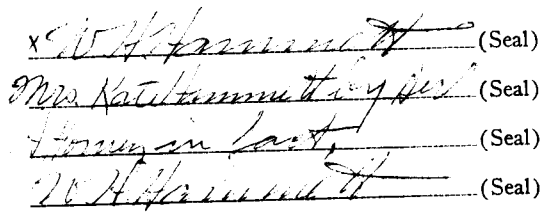 x W. H. Hammett (Seal)
Mrs. Kate Hammett by Her (Seal)
in fact, (Seal)
W. H. Hammett (Seal)